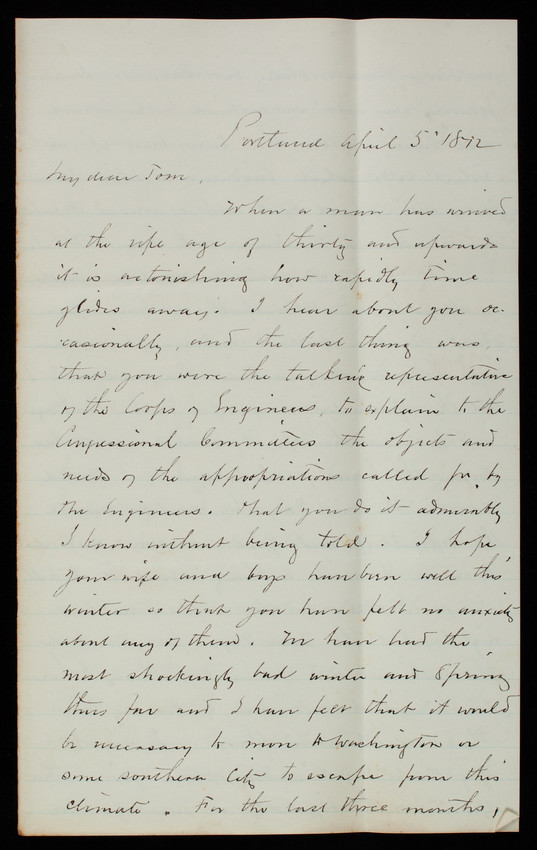 Portland April 5' 1872
My dear Tom,
When a man has arrived
at the ripe age of thirty and upwards
it is astonishing how rapidly time
glides away. I hear about you oc-
casionally, and the last thing was,
that you were the talking representative
of the Corps of Engineers, to explain to the
Congressional Committees the objects and
needs of the appropriations called for by
the Engineers. That you do it admirably
I know without being told. I hope
your wife and boys have been well this
winter so that you have felt no anxiety
about any of them. We have had the
most shockingly bad winter and Spring
thus far and I have felt that it would
be necessary to move to Washington or
some southern City to escape from this
climate. For the last three months,